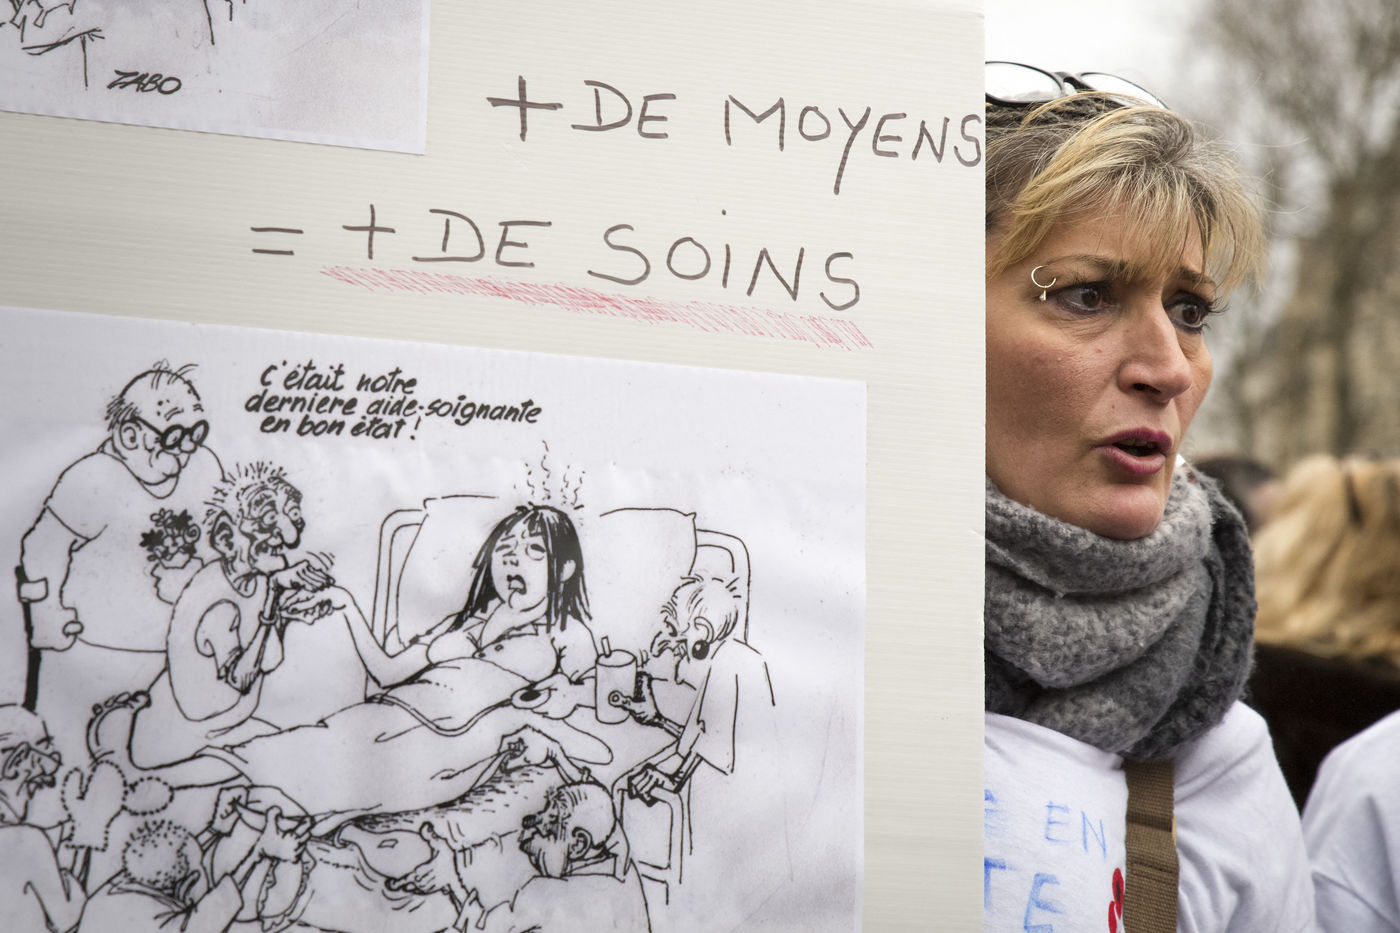 ZABO
+ DE MOYENS
= + DE SOINS
c'était notre
dernière aide-soignante
en bon état!
EN
TE